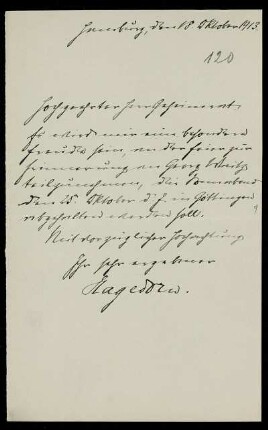 Hamburg, den 18. Oktober 1913.
120
Hochgeehrter Herr Geheimrat,
Es würde mir eine besondere
Freude sein, an der Feier zur
Erinnerung an Georg Waitz
teilzunehmen, die Sonnabend
den 25. Oktober d. J. in Göttingen
abgehalten werden soll.
Mit vorzüglicher Hochachtung
Ihr sehr ergebener
Hagedorn.